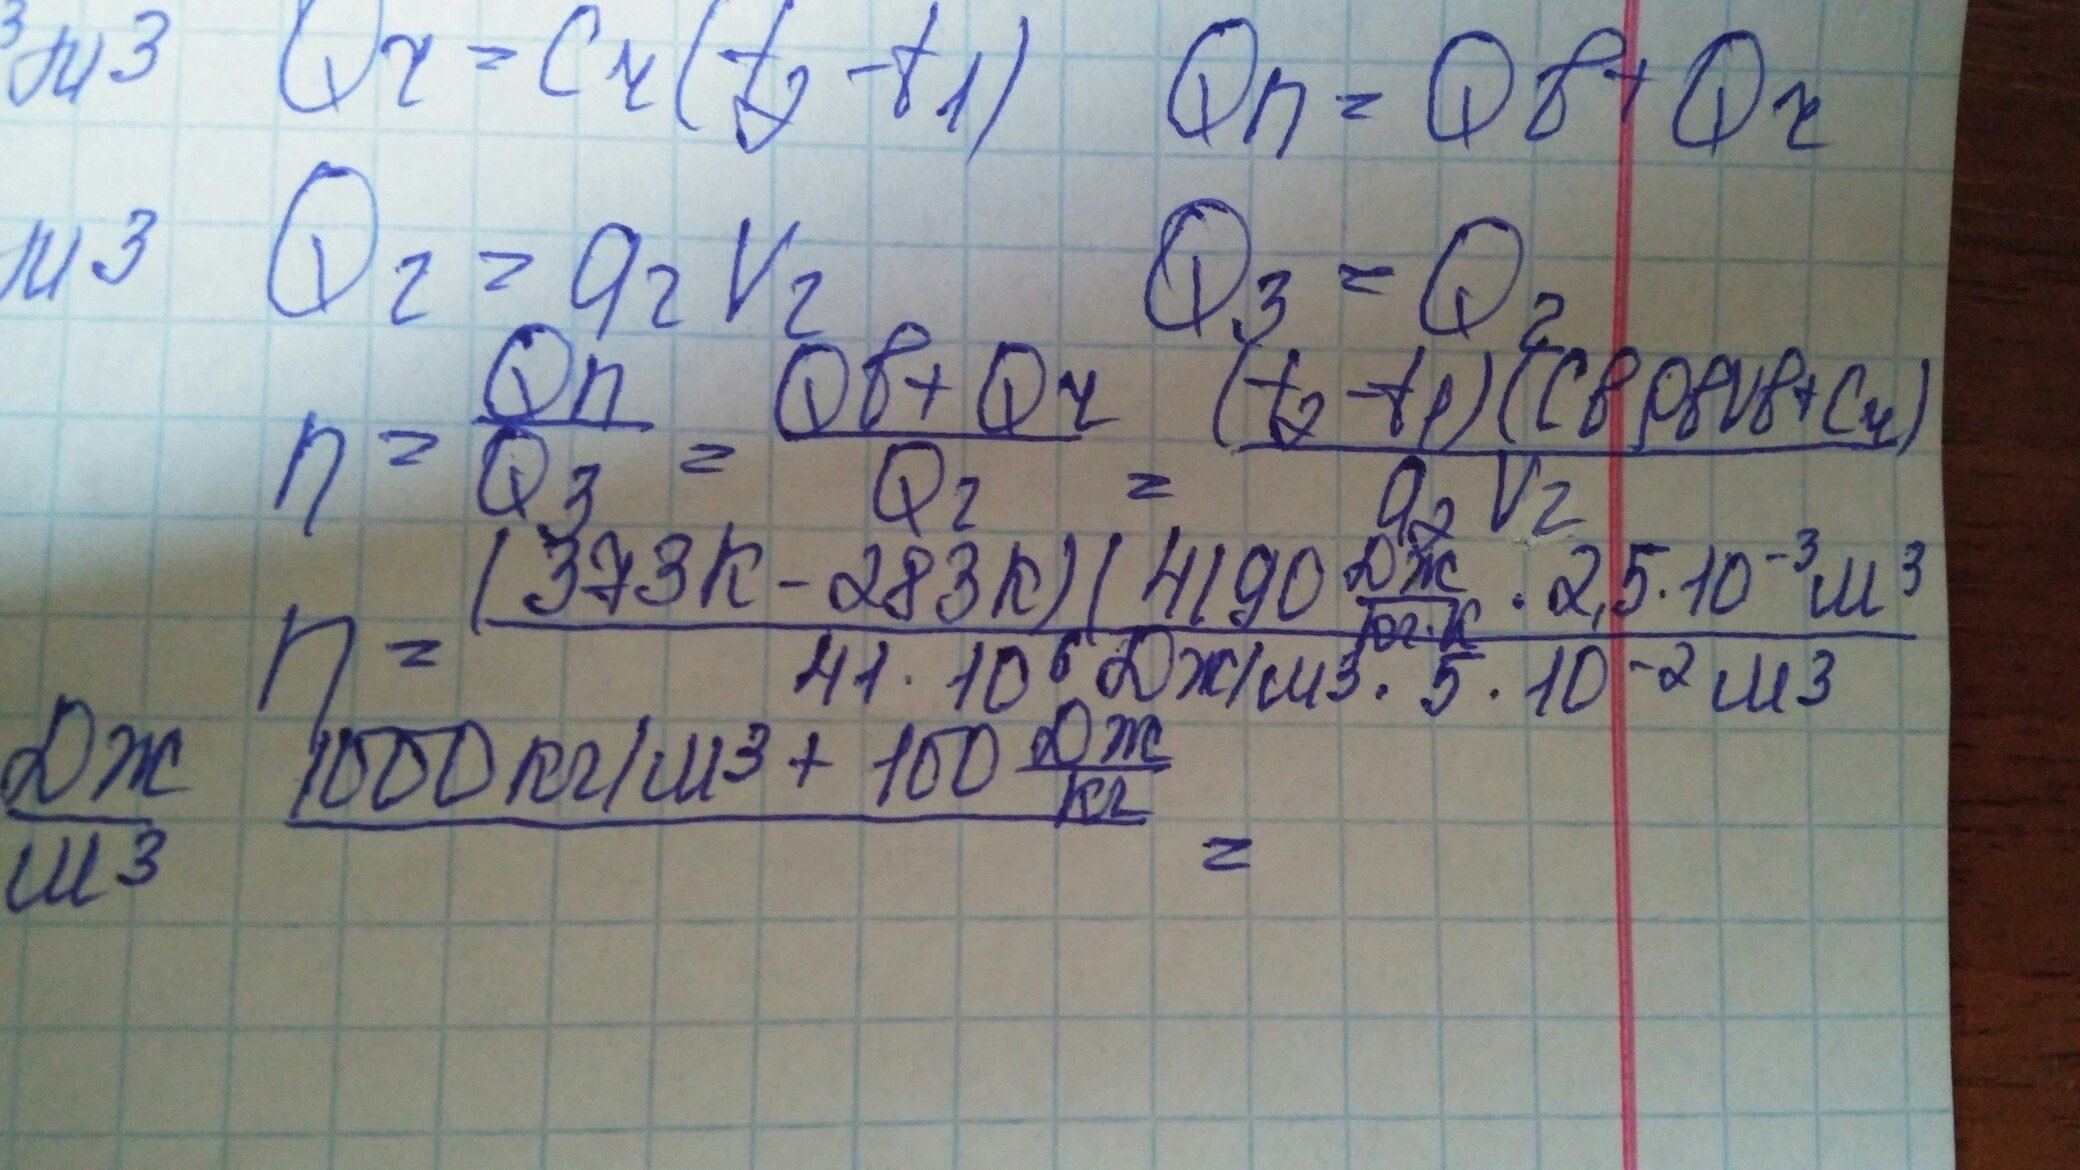 ³м3 Qч = Cч(t2 - t1) Qп = Qв + Qч
м3 Qг = qг Vг Q3 = Qг
n = Qп/Q3 = Qв + Qч/Qг = (t2 - t1)(Cв ρвVв + Cч)/qг Vг
n = (373К - 283К)(4190 Дж/кг·К · 2,5 · 10⁻³ м³
41 · 10⁶ Дж/м3 · 5 · 10⁻² м3
Дж/м3 1000 кг/м3 + 100 Дж/кг =